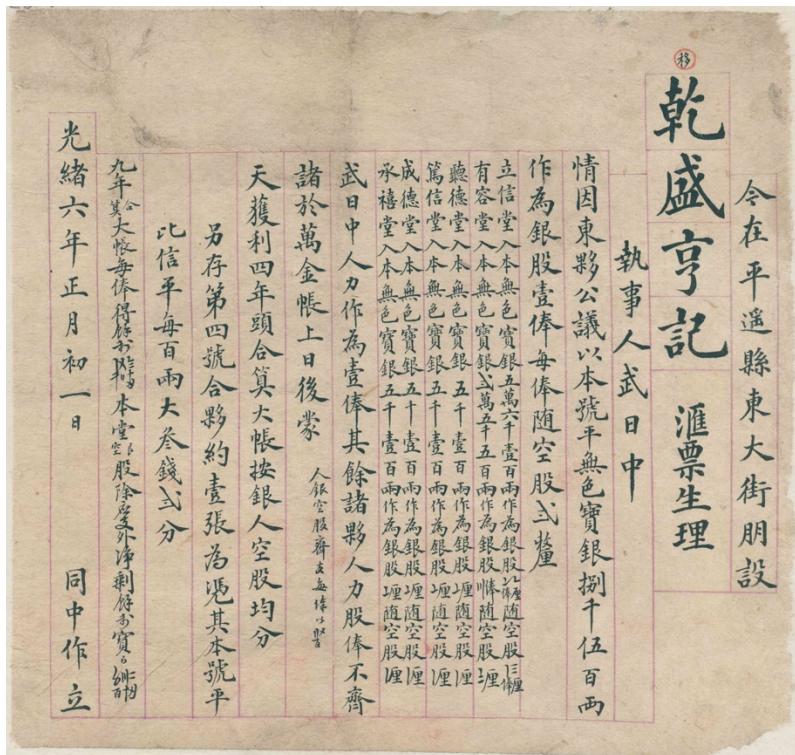 移
今在平遥縣東大街朋設
乾盛亨記 滙票生理
執事人武日中
情因東夥公議以本號平無色寶銀捌千伍百兩
作為銀股壹俸每俸随空股弍釐
立信堂入本無色寶銀五萬六千壹百兩作為銀股 随空股
有容堂入本無色寶銀弍萬五千五百兩作為銀股 俸随空股 厘
聽德堂入本無色寶銀五千壹百兩作為銀股 厘随空股 厘
篤信堂入本無色寶銀五千壹百兩作為銀股 厘随空股 厘
成德堂入本無色寶銀五千壹百兩作為銀股 厘随空股 厘
承禧堂入本無色寶銀五千壹百兩作為銀股 厘随空股 厘
武日中人力作為壹俸其餘諸夥人力股俸不齊
諸於萬金帳上日後蒙
人銀空股齊去每俸
天獲利四年頭合算大帳按銀人空股均分
另存第四號合夥約壹張為憑其本號平
比信平每百兩大叁錢弍分
九年合算大帳每俸得餘 本堂 股除 外净剩餘 寶
光緒六年正月初一日 同中作立